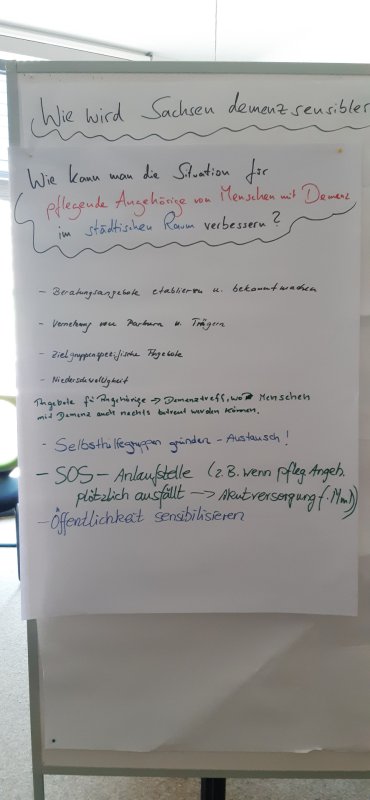 Wie wird Sachsen demenzsensibler
Wie kann man die Situation für
pflegende Angehörige von Menschen mit Demenz
im städtischen Raum verbessern?
- Beratungsangebote etablieren u. bekannt machen
- Vernetzung von Partnern u. Trägern
- Zielgruppenspezifische Angebote
- Niederschwelligkeit
Angebote für Angehörige → Demenztreff, wo Menschen
mit Demenz auch nachts betreut werden können.
- Selbsthilfegruppen gründen - Austausch!
- SOS - Anlaufstelle (z.B. wenn pfleg. Angeh.
plötzlich ausfällt → Akutversorgung f. MmD)
- Öffentlichkeit sensibilisieren